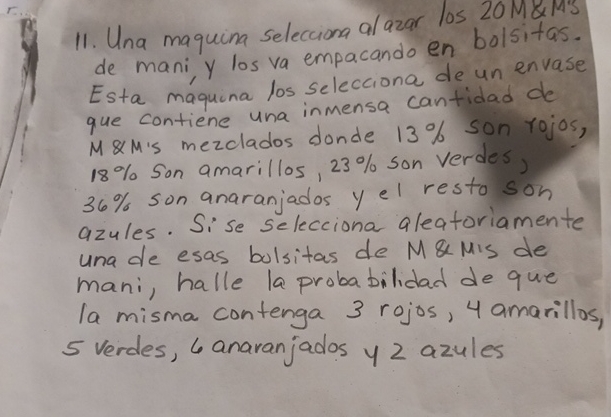 11. Una maquina selecciona al azar los 20 M&M's
de mani, y los va empacando en bolsitas.
Esta máquina los selecciona de un envase
que contiene una inmensa cantidad de
M&M's mezclados donde 13% son rojos,
18% son amarillos, 23% son verdes,
36% son anaranjados y el resto son
azules. Si se selecciona aleatoriamente
una de esas bolsitas de M&M's de
mani, halle la probabilidad de que
la misma contenga 3 rojos, 4 amarillos,
5 verdes, 6 anaranjados y 2 azules